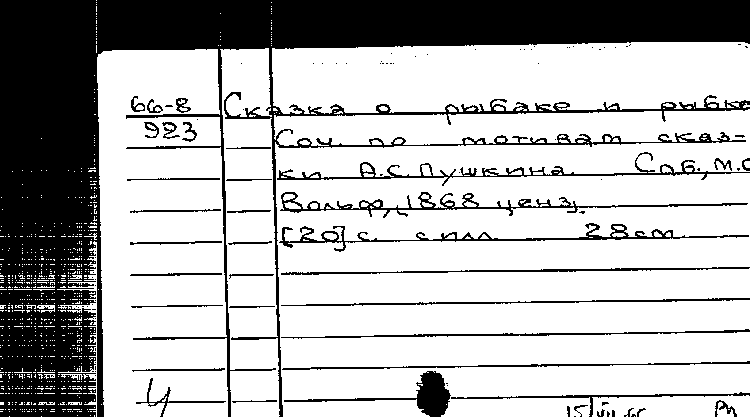 66-8 Сказка о рыбаке и рыбке
923 Соч. по мотивам сказ-
ки А.С. Пушкина. Спб., М.О
Вольф, [1868 ценз].
[20] с. с илл 28 см
Ч
15/VII 65